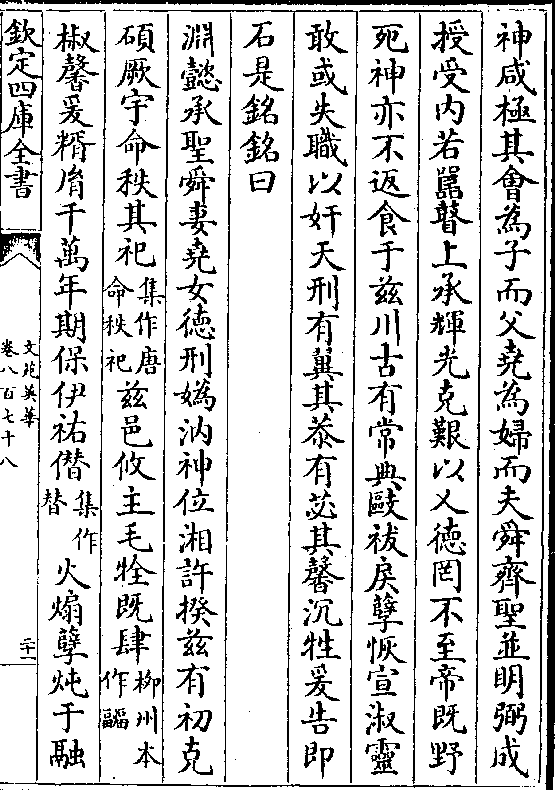 神咸極其會為子而父堯為婦而夫舜齊聖並明弼成
授受内若嚚瞽上承輝光克艱以乂德罔不至帝既野
死神亦不返食于兹川古有常典敺祓戾孽恢宣淑靈
敢或失職以奸天刑有翼其恭有苾其馨沉牲爰告即
石是銘銘曰
淵懿承聖舜妻堯女德刑嬀汭神位湘許揆兹有初克
碩厥宇命秩其祀集作唐命秩祀兹邑攸主毛牷既肆柳州本作疈
椒馨爰糈胥千萬年期保伊祐僭集作替火煽孽炖于融
欽定四庫全書
文苑英華
卷八百七十八
二十一